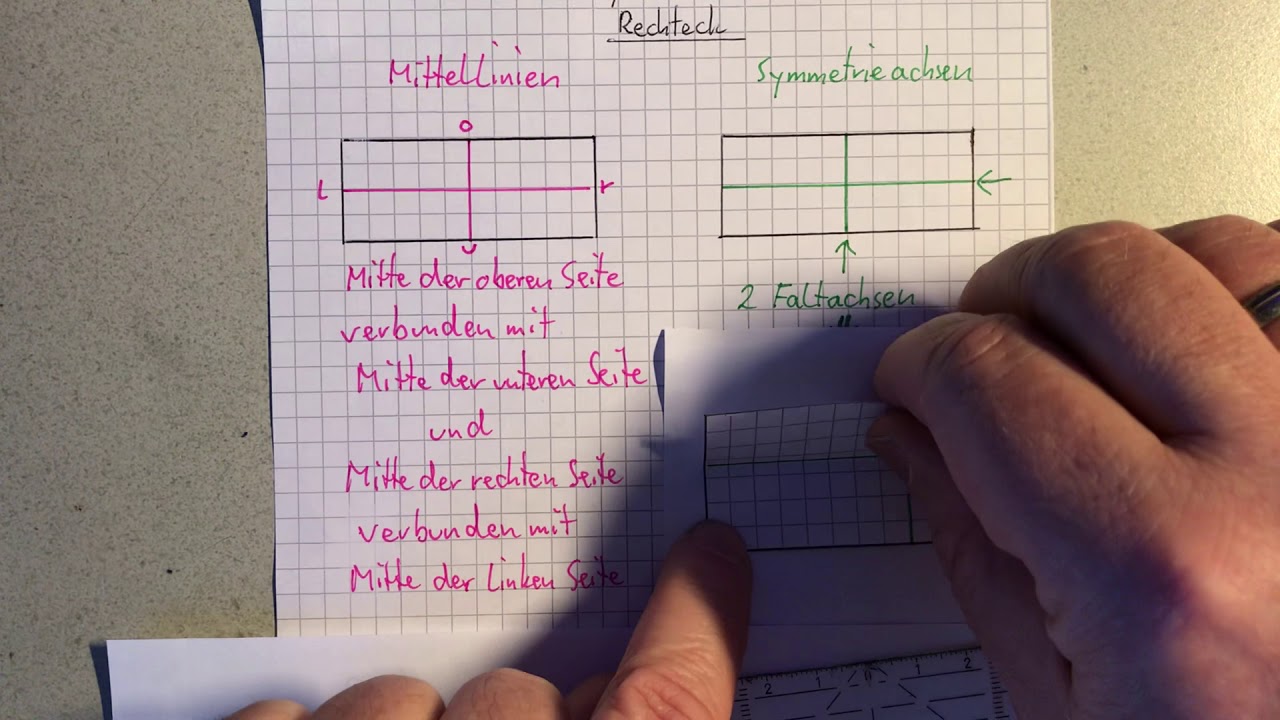 Rechteck
Mittellinien
Symmetrieachsen
o
l
r
u
Mitte der oberen Seite
verbunden mit
Mitte der unteren Seite
und
Mitte der rechten Seite
verbunden mit
Mitte der linken Seite
2 Faltachsen
2 1 1 2